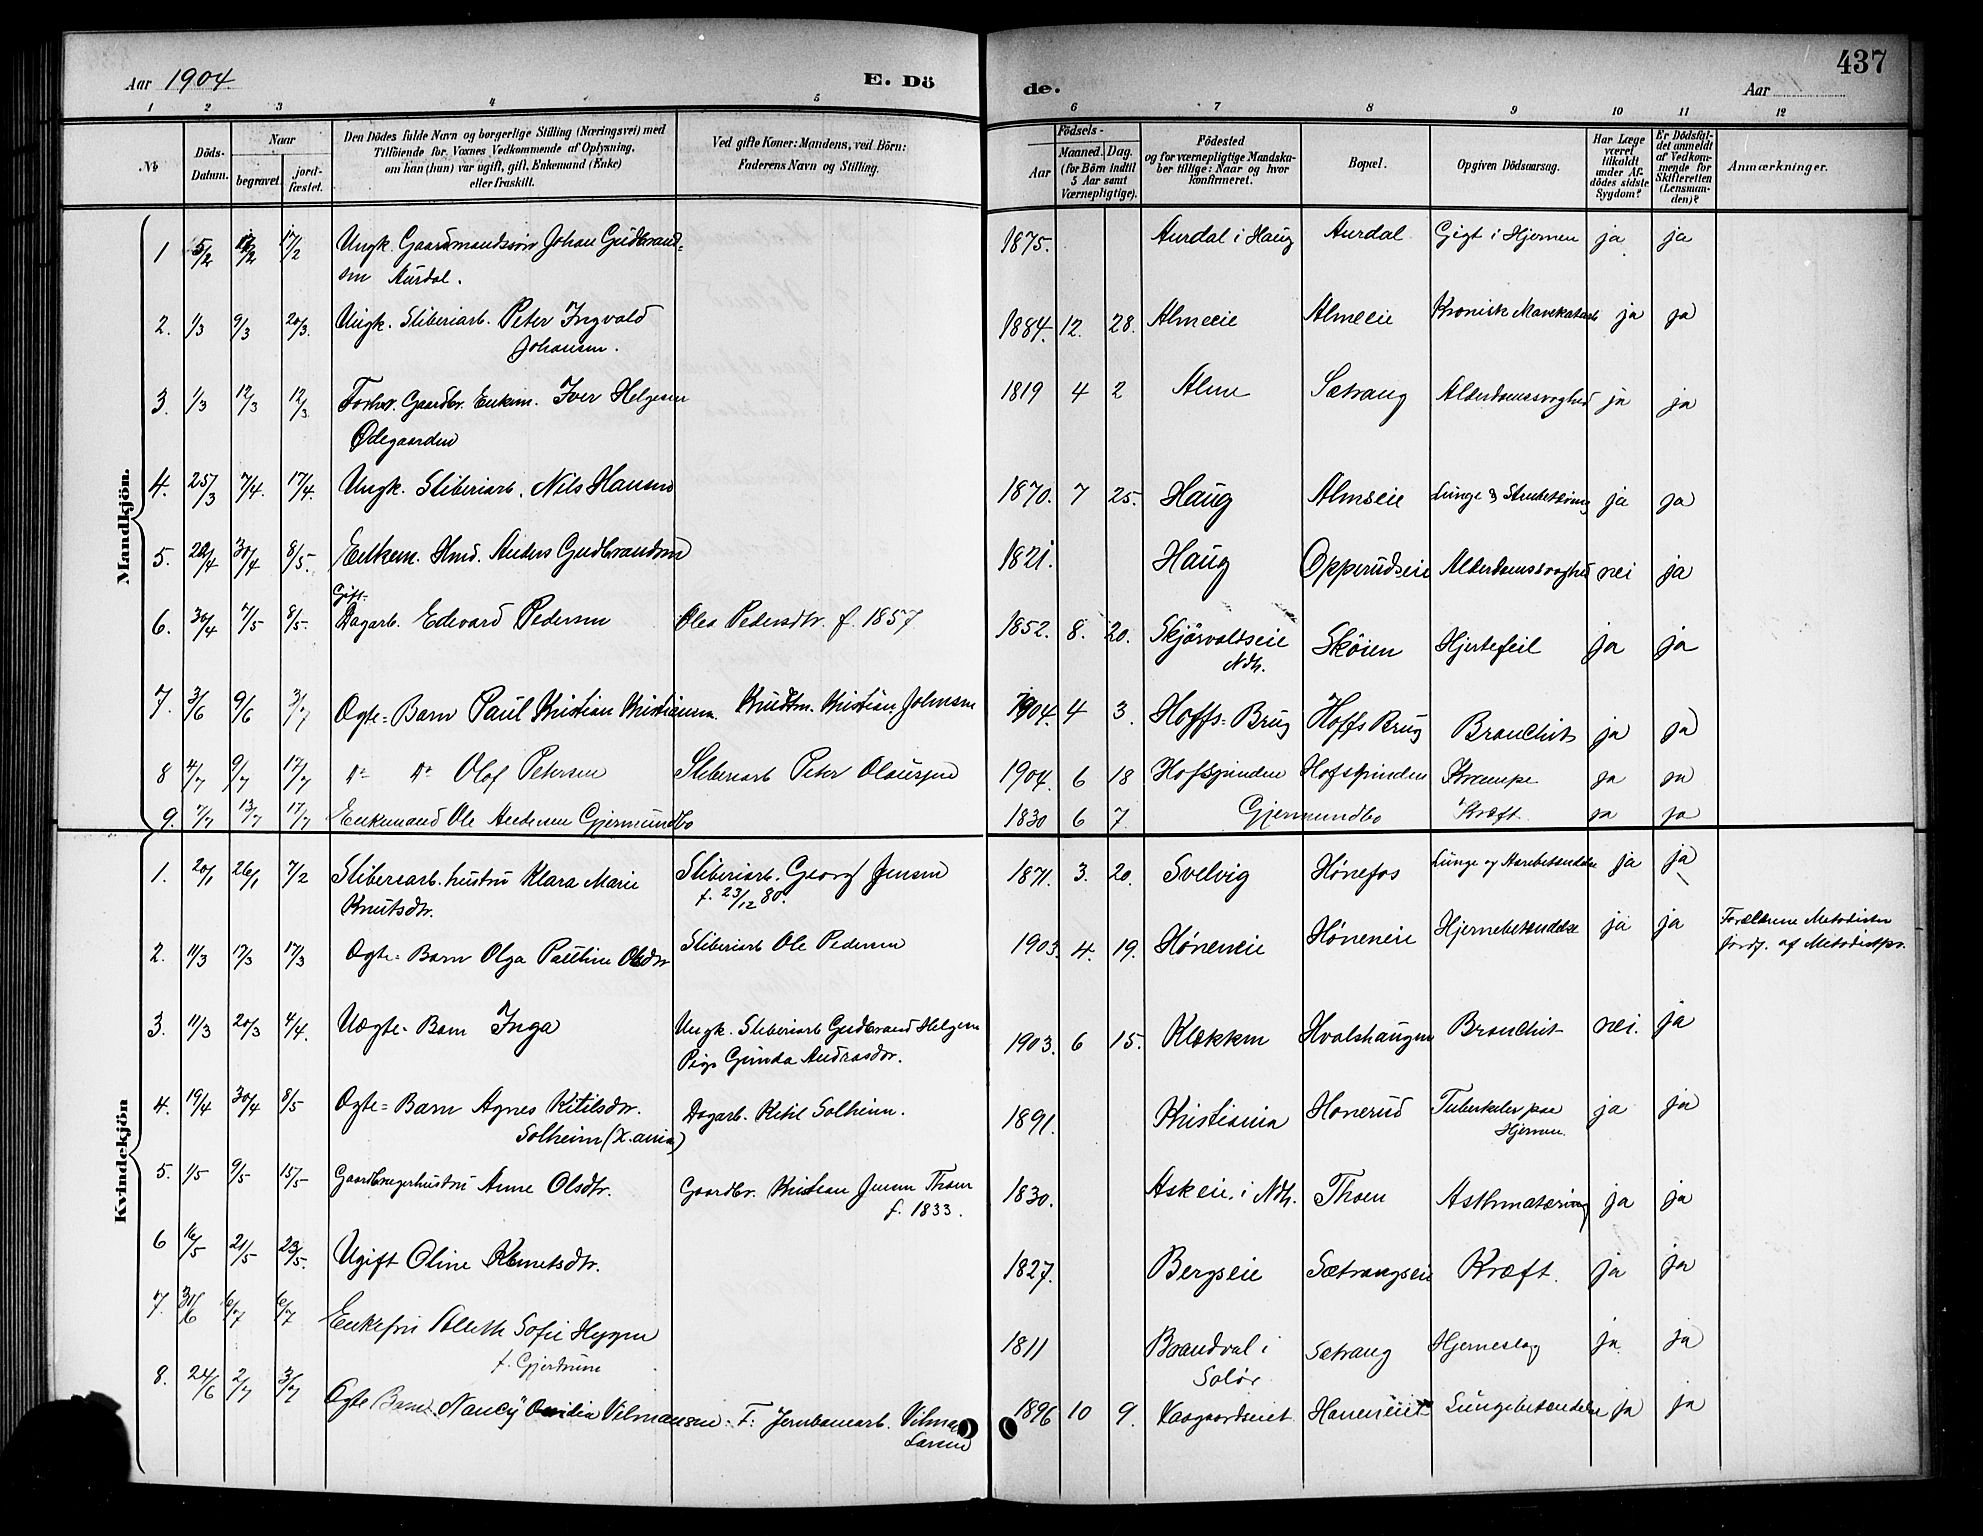 437
Aar 1904.
E. Dö
de.
Aar
1 2 3 4 5
6 7 8 9 10 11 12
№
Döds-Datum.
Naar
begravet
jord-fæstet.
Den Dödes fulde Navn og borgerlige Stilling (Næringsvei) med
Tilföiende for Voxnes Vedkommende af Oplysning,
om han (hun) var ugift, gift, Enkemand (Enke)
eller fraskilt.
Ved gifte Koner: Mandens, ved Börn:
Faderens Navn og Stilling.
Födsels-
Aar
Maaned. Dag.
(for Börn indtil
5 Aar samt
Værnepligtige).
Födested
og for værnepligtige Mandska-
ber tillige: Naar og hvor
konfirmeret.
Bopæl.
Opgiven Dödsaarsag.
Har Læge
været
tilkaldt
under Af-
dödes sidste
Sygdom?
Er Dödsfal-
det anmeldt
af Vedkom-
mende for
Skifteretten
(Lensman-
den)?
Anmærkninger.
Mandkjön.
1 5/2 17/2 Ungk. Gaardmandssøn Johan Gudbrand-
sen Aurdal. 1875. Aurdal i Haug Aurdal Gigt i Hjernen ja ja
2. 1/3 9/3 20/3. Ungk. Sliberiarb. Peter Ingvald
Johansen. 1884. 12. 28. Almeeie Almeeie Kronisk Mavekatarh ja ja
3. 1/3 12/3 12/3 Forhv. Gaardbr. Enkem. Iver Helgesen
Ødegaarden 1819 4 2 Alme Sætrang Alderdomssvaghed ja ja
4. 25/3 7/4. 17/4. Ungk. Sliberiarb. Nils Hansen 1870. 7 25. Haug Almseie ja ja
5. 30/4 8/5. Enkem. Hmd. Anders Gudbrandsen 1821. Haug Opperudseie Alderdomssvaghed nei ja
Gift.
6. 30/4 7/5 8/5. Dagarb. Edevard Pedersen Olea Pedersdtr. f. 1857 1852. 8. 20. Skjörvoldseie
Ndh. Skøien Hjertefeil ja ja
7. 3/6 9/6 3/7 Ægte-Barn Paul Kristian Kristiansen. Kristian Johnsen 1904. 4 3. Hoffs-Brug Hoffs Brug Bronchit ja ja
8 4/7 9/7 17/7 do do Olof Petersen Sliberiarb Peter Olausen 1904. 6 18 Hofsgrinden Hofsgrinden Krampe ja ja
9. 7/7 13/7 17/7 Enkemand Ole Andersen Gjermundbo 1830 6 7 Gjermundbo Kræft. ja ja
Kvindekjön
1. 20/1 26/1 7/2 Sliberiarb. hustru Klara Marie
Knutsdtr. Sliberiarb. Georg Jensen
f. 23/12 80. 1871. 3. 20. Svelvig Hønefos ja ja
2. 11/3 17/3 17/3 Ægte-Barn Olga Pauline Olsdtr Sliberiarb Ole Pedersen 1903. 4. 19. Høneneie Høneneie Hjernebetændelse ja ja Forældrene Metodister
af Metodistpr.
3. 11/3 20/3 4/4. Uægte-Barn Inga Ungk. Sliberiarb Gudbrand Helgesen
Pige Gunda Andreasdtr. 1903. 6 15. Klækken Hvalshaugen Bronchit nei. ja
4. 19/4 30/4 8/5 Ægte-Barn Agnes Ketilsdtr.
Solheim (X.ania) Dagarb. Ketil Solheim. 1891. Kristiania Honerud Tuberkeler paa
Hjernen. ja ja
5. 1/5 9/5 15/5 Gaardbrugerhustru Anne Olsdtr. Gaardbr. Kristian Jensen Thoen
f. 1833. 1830. Askeie i Ndh. Thoen ja ja
6 16/5 21/5 23/5. Ugift Oline Klemetsdtr. 1827. Bergseie Sætrangseie Kræft. ja ja
7. 6/7 6/7 Enkefru Sofie Hygen
f. Gjerdrum 1811 Brandval i
Solør Sætrang Hjerneslag ja ja
8. 24/6 2/7 3/7 Ægte Barn Nancy Ovidia Vilmansen. F: Jernbanearb. Vilman
Larsen 1896 10 9. Høneneiet Lungebetændelse ja ja